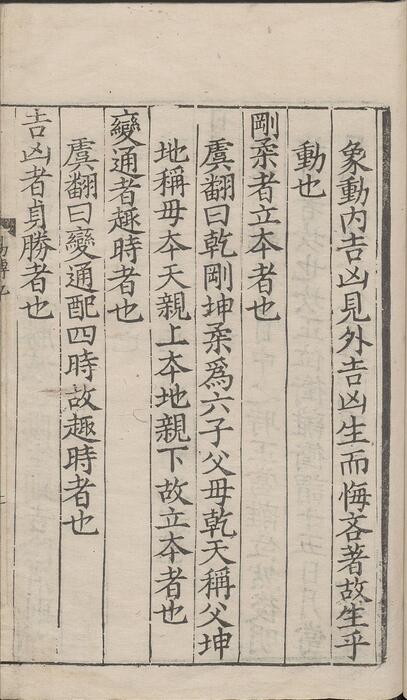 象動内吉凶見外吉凶生而悔吝著故生乎
動也
剛柔者立本者也
虞翻曰乾剛坤柔爲六子父毋乾天稱父坤
地稱毋夲天親上夲地親下故立夲者也
變通者趣時者也
虞翻曰變通配四時故趣時者也
吉凶者貞勝者也